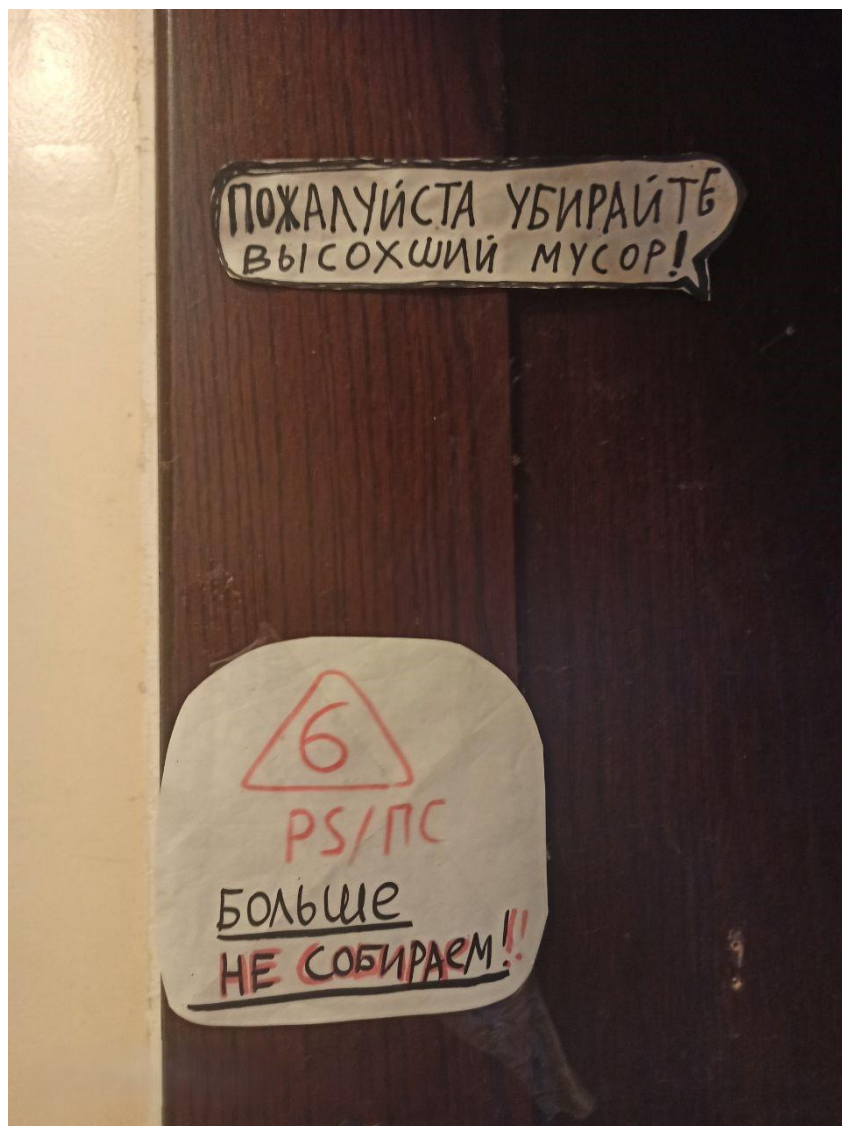 ПОЖАЛУЙСТА УБИРАЙТЕ
ВЫСОХШИЙ МУСОР!
6
PS/ПС
БОЛЬШЕ
НЕ СОБИРАЕМ!!